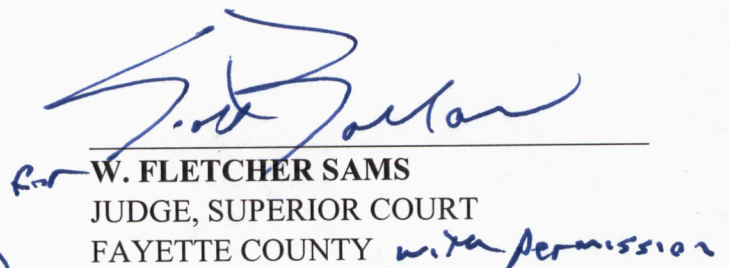 Scott Ballar
for W. FLETCHER SAMS
JUDGE, SUPERIOR COURT
FAYETTE COUNTY with permission